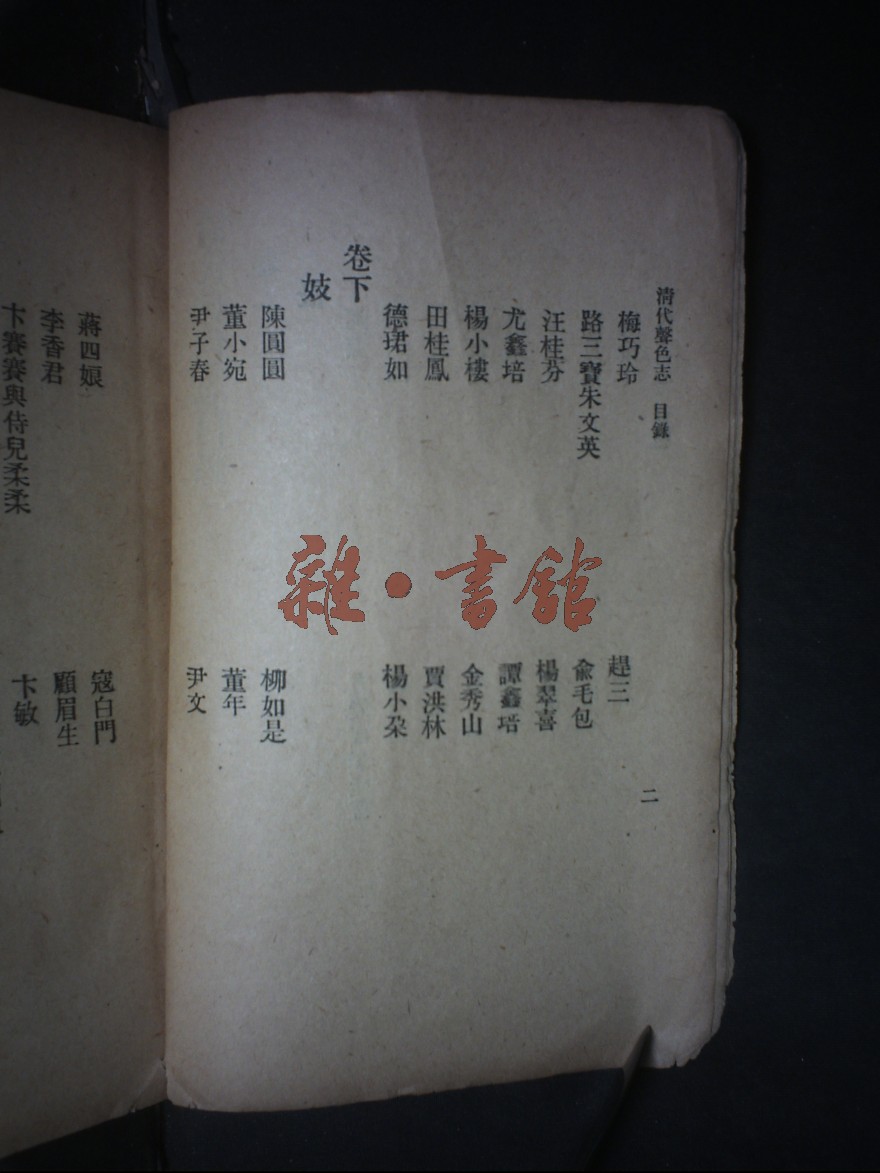 清代聲色志 目錄 二
梅巧玲 趕三
路三寶朱文英 俞毛包
汪桂芬 楊翠喜
尤鑫培 譚鑫培
楊小樓 金秀山
田桂鳳 賈洪林
德珺如 楊小朶
卷下
妓
陳圓圓 柳如是
董小宛 董年
尹子春 尹文
蔣四娘 寇白門
李香君 顧眉生
卞賽賽與侍兒柔柔 卞敏
雜·書館